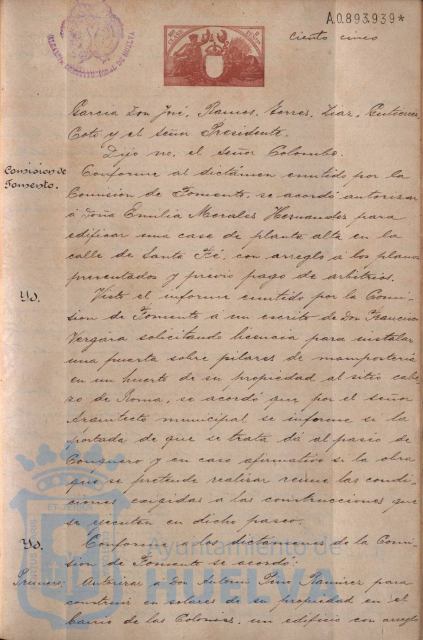 A.0.893.939*
ciento cinco
Garcia Don José, Ramos, Torres, Diaz, Gutierrez
Coto y el Señor Presidente.
Dijo no, el Señor Colombo.
Comision de
Fomento.
Conforme al dictámen emitido por la
Comision de Fomento, se acordó autorizar
á Doña Emilia Morales Hernandez para
edificar una casa de planta alta en la
calle de Santa Fé, con arreglo á los planos
presentados y previo pago de arbitrios.
Yd.
Visto el informe emitido por la Comi-
sion de Fomento á un escrito de Don Francisco
Vergara solicitando licencia para instalar
una puerta sobre pilares de mamposteria
en un huerto de su propiedad al sitio cabe-
zo de Roma, se acordó que por el señor
Arquitecto municipal se informe si la
portada de que se trata dá al paseo de
Conquero y en caso afirmativo si la obra
que se pretende realizar reune las condi-
ciones exigidas á las construcciones que
se ejecuten en dicho paseo.
Yd.
Conforme a los dictamenes de la Comi-
sion de Fomento se acordó:
Primero: Autorizar á don Antonio Pino Ramirez para
construir en solares de su propiedad en el
Barrio de las Colonias, un edificio con arreglo
Ayuntamiento de
HUELVA